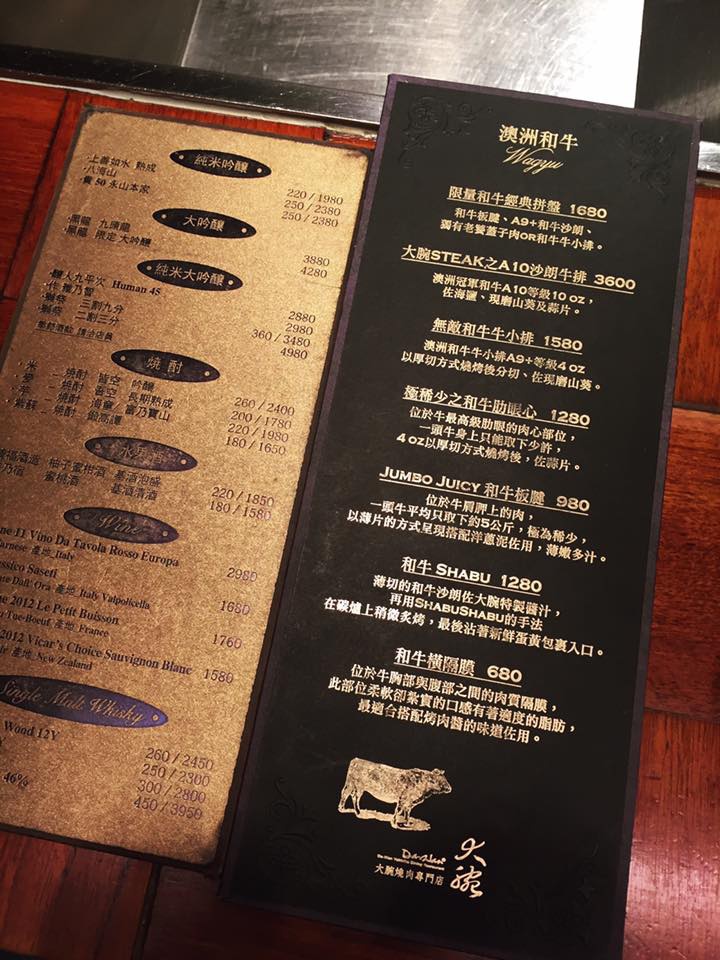 純米吟釀
上善如水 熟成 220 / 1980
八海山 250 / 2380
貴 50 永山本家 250 / 2380
大吟釀
黑龍 九頭龍 3880
黑龍 限定 大吟釀 4280
純米大吟釀
釀人九平次 Human 45 2880
作 雅乃智 2980
獺祭 三割九分 360 / 3480
獺祭 二割三分 4980
燒酎
米 - 燒酎 皆空 吟釀 260 / 2400
麥 - 燒酎 吾空 長期熟成 200 / 1780
燒酎 海童 富乃寶山 220 / 1980
紫蘇 - 燒酎 鍛高譚 180 / 1650
柚子蜜柑酒 基酒泡盛 220 / 1850
蜜桃酒 基酒清酒 180 / 1580
Wine
Vino Da Tavola Rosso Europa 2980
產地 Italy
Saseti 1680
Dall' Ora 產地 Italy Valpolicella
2012 Le Petit Buisson 1760
Tue-Boeuf 產地 France
2012 Vicar's Choice Sauvignon Blanc 1580
產地 New Zealand
Single Malt Whisky
Wood 12Y 260 / 2450
250 / 2300
46% 300 / 2800
450 / 3950
澳洲和牛
Wagyu
限量和牛經典拼盤 1680
和牛板腱、A9+和牛沙朗、
獨有老饕蓋子肉OR和牛牛小排。
大腕STEAK之A10沙朗牛排 3600
澳洲冠軍和牛A10等級10 oz，
佐海鹽、現磨山葵及蒜片。
無敵和牛牛小排 1580
澳洲和牛牛小排A9+等級4 oz
以厚切方式燒烤後分切、佐現磨山葵。
極稀少之和牛肋眼心 1280
位於牛最高級肋眼的肉心部位，
一頭牛身上只能取下少許，
4 oz以厚切方式燒烤後，佐蒜片。
JUMBO JUICY 和牛板腱 980
位於牛肩胛上的肉，
一頭牛平均只取下約5公斤，極為稀少，
以薄片的方式呈現搭配洋蔥泥佐用，薄嫩多汁。
和牛 SHABU 1280
薄切的和牛沙朗佐大腕特製醬汁，
再用SHABUSHABU的手法
在碳爐上稍微炙烤，最後沾著新鮮蛋黃包裹入口。
和牛橫隔膜 680
位於牛胸部與腹部之間的肉質隔膜，
此部位柔軟卻紮實的口感有著適度的脂肪，
最適合搭配烤肉醬的味道佐用。
大腕
大腕燒肉專門店